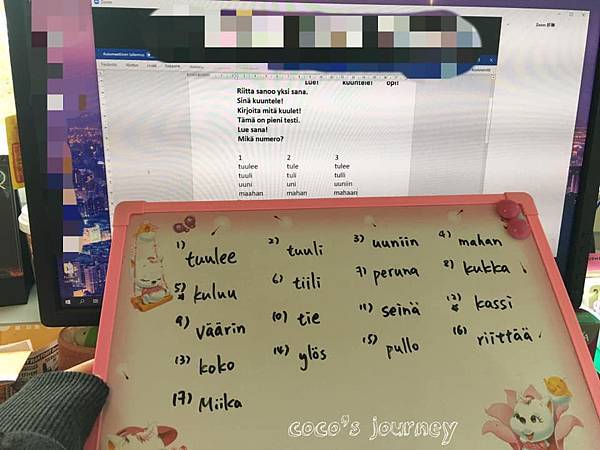 Lue! kuuntele! opi!
Riitta sanoo yksi sana.
Sinä kuuntele!
Kirjoita mitä kuulet!
Tämä on pieni testi.
Lue sana!
Mikä numero?
1 2 3
tuulee tule tulee
tuuli tuli tulli
uuni uni uuniin
maahan mahan mahaan
1) tuulee 2) tuuli 3) uuniin 4) mahan
5) kuluu 6) tiili 7) peruna 8) kukka
9) väärin 10) tie 11) seinä 12) kassi
13) koko 14) ylös 15) pullo 16) riittää
17) Miika
coco's journey